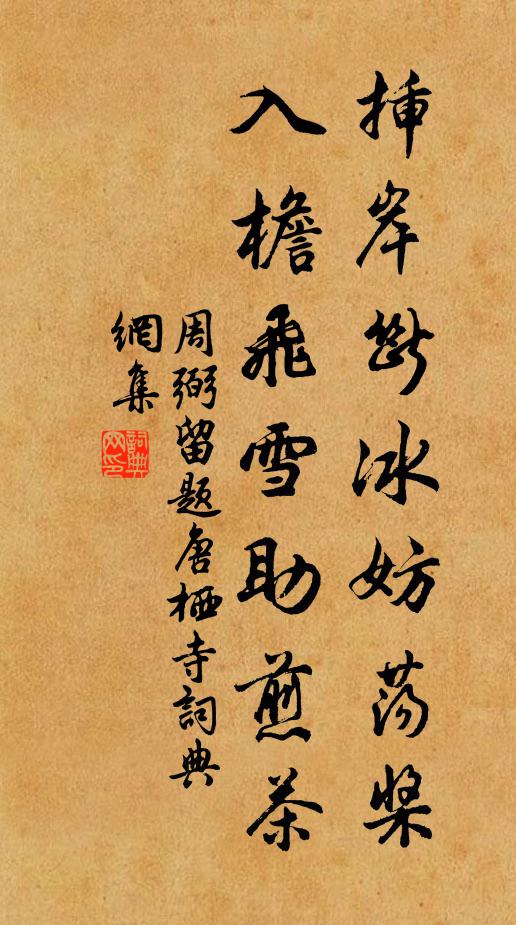 插岸斷冰妨荡槳
入檐飛雪助煎茶
周弼留题唐栖寺詞典
網集
詞典
网印